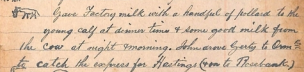 Gave Factory milk with a handful of pollard to the
young calf at dinner time & some good milk from
the cow at night & morning. John drove Gerty to Orm
to catch the express for Hastings (from to Rosebank)